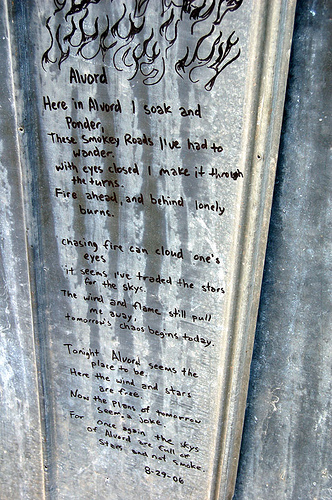 Alvord
Here in Alvord I soak and
Ponder,
These Smokey Roads I've had to
wander.
with eyes closed I make it through
the turns.
Fire ahead, and behind lonely
burns.
chasing fire can cloud one's
eyes
it seems I've traded the stars
for the skys.
The wind and flame still pull
me away,
tomorrow's chaos begins today.
Tonight Alvord seems the
place to be.
Here the wind and stars
are free.
Now the plans of tomorrow
seem a joke.
For once again the skys
of Alvord are full of
stars and not smoke.
8-29-06